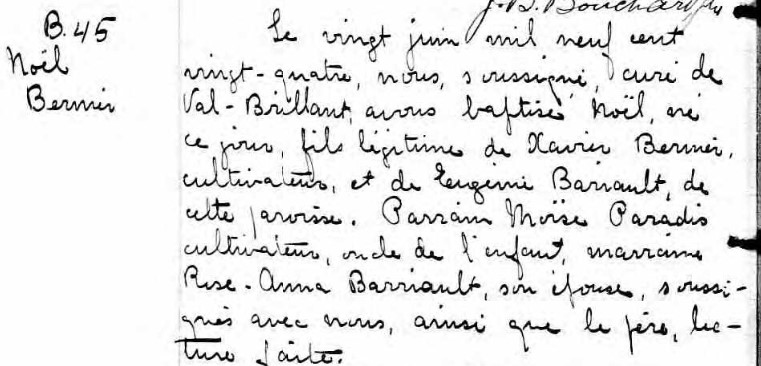 J.B. Bouchard ptre
B. 45
Noël
Bernier
Le vingt juin mil neuf cent
vingt-quatre, nous, soussigné, curé de
Val-Brillant, avons baptisé Noël, né
ce jour, fils légitime de Xavier Bernier,
cultivateur, et de Eugénie Barriault, de
cette paroisse. Parrain Moïse Paradis
cultivateur, oncle de l'enfant, marraine
Rose-Anna Barriault, son épouse, soussi-
gnés avec nous, ainsi que le père, lec-
ture faite.